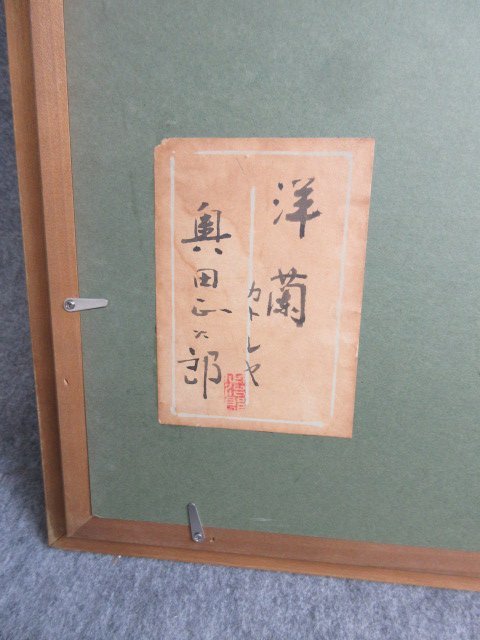 洋蘭
カトレヤ
奥田正次郎